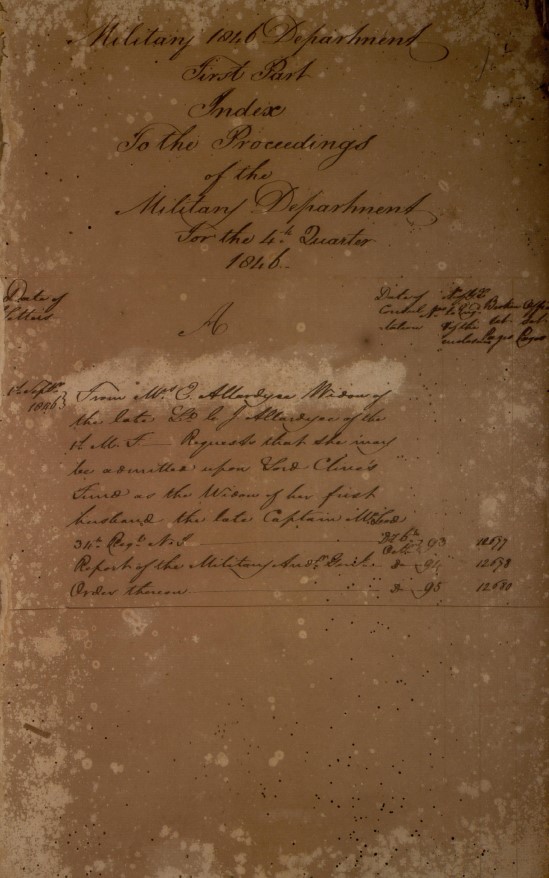 Military 1846 Department
First Part
Index
To the Proceedings
of the
Military Department
For the 4th Quarter
1846.
Date of
Letters
A
Date of
Consul
tation
Nos to
of the
enclosures
1st Septr
1846
From Mrs E. Allardyce Widow of
the late J Allardyce of the
1st M. F. Requests that she may
be admitted upon Lord Clive's
Fund as the Widow of her first
husband the late Captain McLeod
34th Regt N.I. Octr 93 12677
Report of the Military Audr Genl. do 94 12678
Order thereon do 95 12680